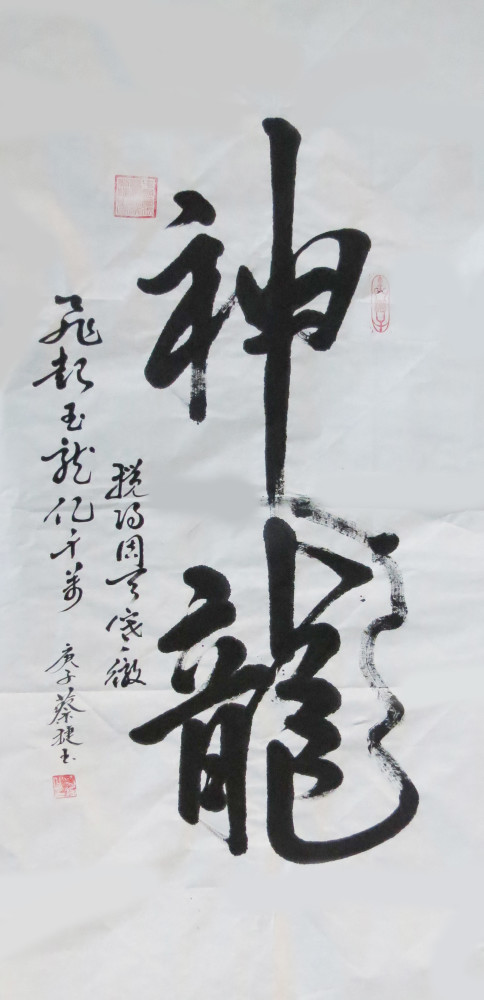 神龍
飞起玉龙亿千萬
搅得周天寒徹
庚子蔡捷书